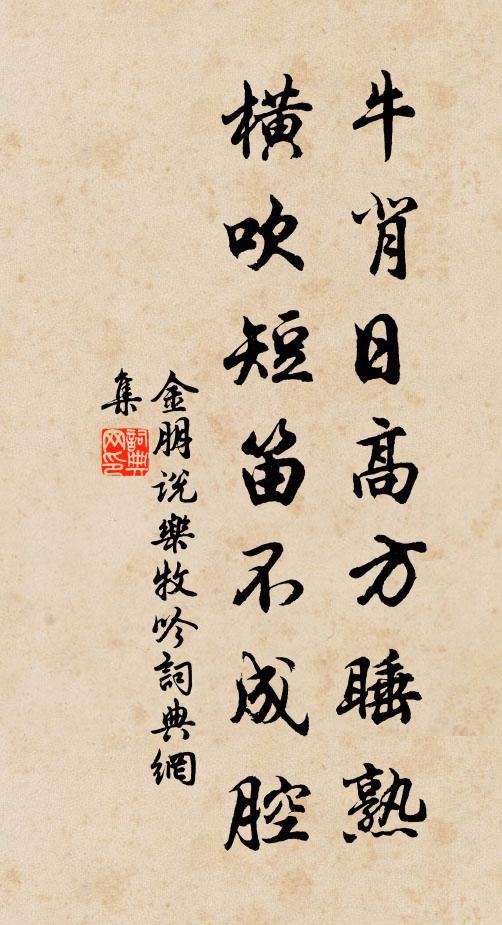 牛背日高方睡熟
橫吹短笛不成腔
金朋説樂牧吟詞典網
集
詞典
网印